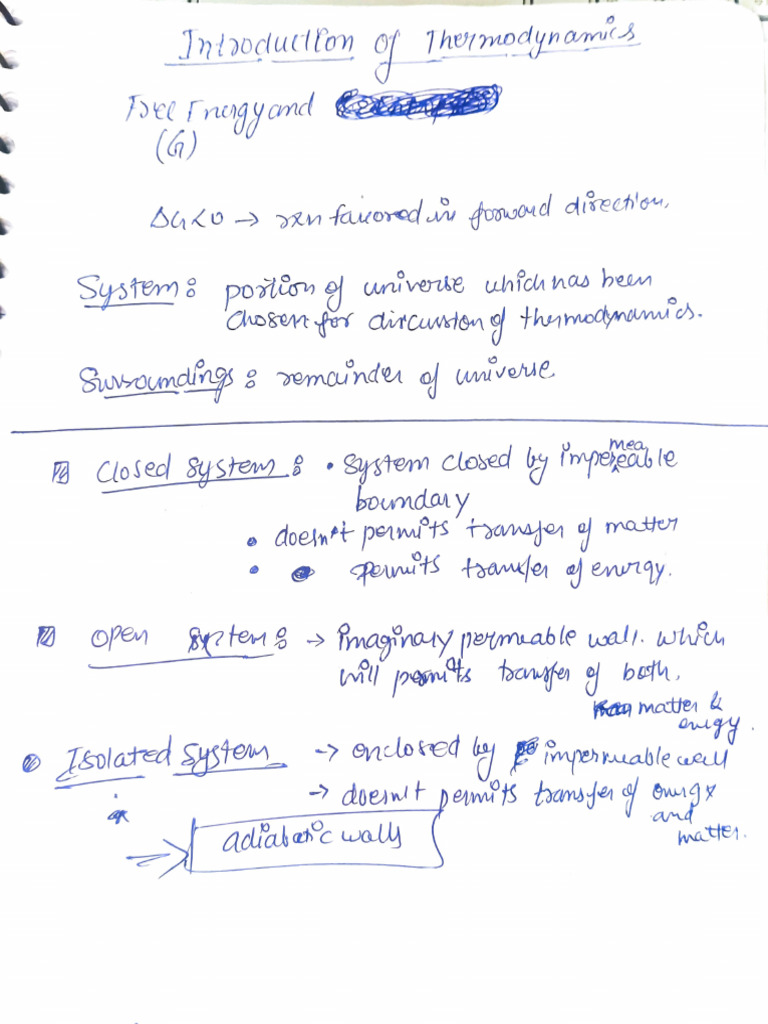 Introduction of Thermodynamics
Free Energy and
(G)
ΔG<0 → rxn favored in forward direction.
System: portion of universe which has been
chosen for dircursion of thermodynamics.
Surroundings: remainder of universe
closed system: • system closed by impermeable
boundary
• doesn't permits transfer of matter
• permits transfer of energy.
open system: → imaginary permeable wall. which
will permits transfer of both,
matter &
energy.
Isolated system → enclosed by impermeable wall
→ doesn't permits transfer of energy
and
matter.
adiabatic walls